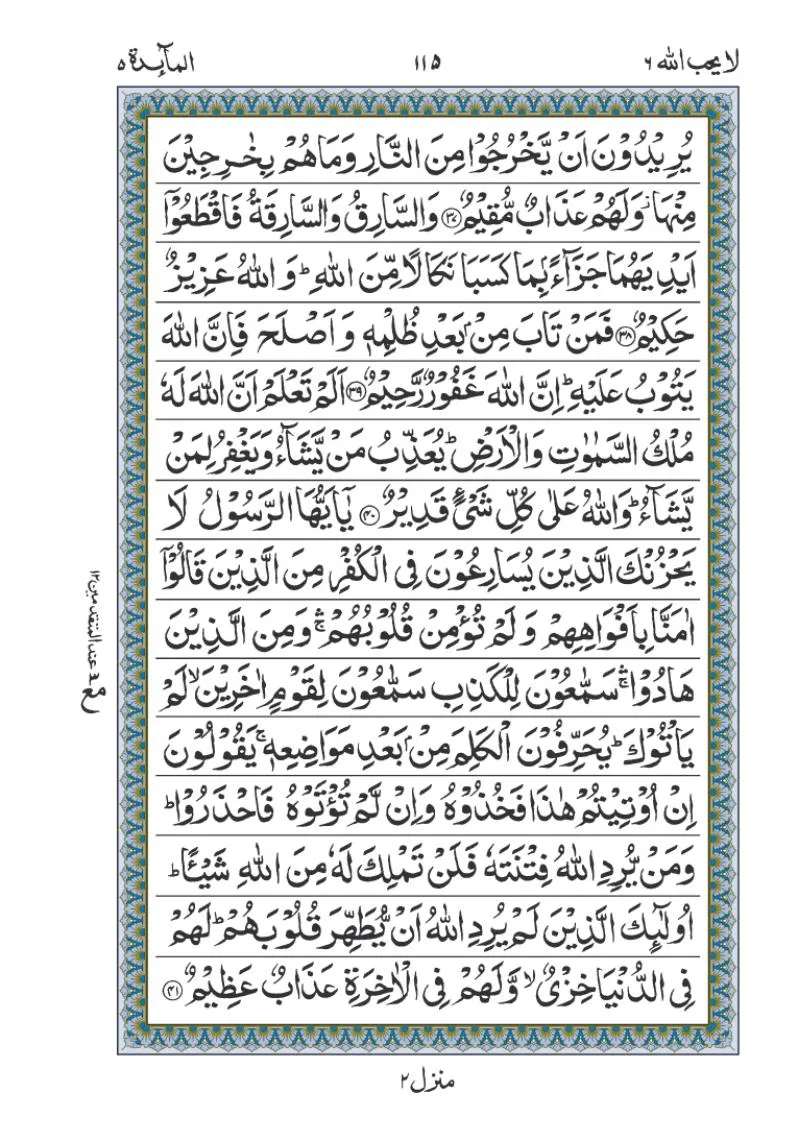 لا يحب الله ٦
١١٥
المآئدة ٥
يُرِيْدُوْنَ اَنْ يَّخْرُجُوْا مِنَ النَّارِ وَمَا هُمْ بِخٰرِجِيْنَ
مِنْهَا ۡ وَلَهُمْ عَذَابٌ مُّقِيْمٌ ﴿۳۷﴾ وَالسَّارِقُ وَالسَّارِقَةُ فَاقْطَعُوْۤا
اَيْدِيَهُمَا جَزَآءًۢ بِمَا كَسَبَا نَكَالًا مِّنَ اللّٰهِ ؕ وَاللّٰهُ عَزِيْزٌ
حَكِيْمٌ ﴿۳۸﴾ فَمَنْ تَابَ مِنْۢ بَعْدِ ظُلْمِهٖ وَاَصْلَحَ فَاِنَّ اللّٰهَ
يَتُوْبُ عَلَيْهِ ؕ اِنَّ اللّٰهَ غَفُوْرٌ رَّحِيْمٌ ﴿۳۹﴾ اَلَمْ تَعْلَمْ اَنَّ اللّٰهَ لَهٗ
مُلْكُ السَّمٰوٰتِ وَالْاَرْضِ ؕ يُعَذِّبُ مَنْ يَّشَآءُ وَيَغْفِرُ لِمَنْ
يَّشَآءُ ؕ وَاللّٰهُ عَلٰى كُلِّ شَىْءٍ قَدِيْرٌ ﴿۴۰﴾ يٰۤاَيُّهَا الرَّسُوْلُ لَا
يَحْزُنْكَ الَّذِيْنَ يُسَارِعُوْنَ فِى الْكُفْرِ مِنَ الَّذِيْنَ قَالُوْۤا
اٰمَنَّا بِاَفْوَاهِهِمْ وَلَمْ تُؤْمِنْ قُلُوْبُهُمْ ۛۚ وَمِنَ الَّذِيْنَ
هَادُوْا ۛۚ سَمّٰعُوْنَ لِلْكَذِبِ سَمّٰعُوْنَ لِقَوْمٍ اٰخَرِيْنَ ۙ لَمْ
يَاْتُوْكَ ؕ يُحَرِّفُوْنَ الْكَلِمَ مِنْۢ بَعْدِ مَوَاضِعِهٖ ۚ يَقُوْلُوْنَ
اِنْ اُوْتِيْتُمْ هٰذَا فَخُذُوْهُ وَاِنْ لَّمْ تُؤْتَوْهُ فَاحْذَرُوْا ؕ
وَمَنْ يُّرِدِ اللّٰهُ فِتْنَتَهٗ فَلَنْ تَمْلِكَ لَهٗ مِنَ اللّٰهِ شَيْـًٔا ؕ
اُولٰٓئِكَ الَّذِيْنَ لَمْ يُرِدِ اللّٰهُ اَنْ يُّطَهِّرَ قُلُوْبَهُمْ ؕ لَهُمْ
فِى الدُّنْيَا خِزْىٌ ۙ وَّلَهُمْ فِى الْاٰخِرَةِ عَذَابٌ عَظِيْمٌ ﴿۴۱﴾
عند المتقدمين ١٢
منزل ٢